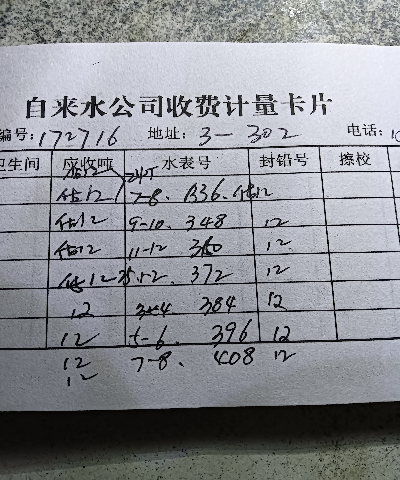 自来水公司收费计量卡片
编号: 172716 地址: 3-302 电话:
卫生间 应收吨 水表号 封铅号 擦校
估12 7-8. 336. 估12
估12 9-10. 348 12
估12 11-12 360 12.
估12 25.1-2. 372 12
12 3-4 384 12
12 5-6. 396 12
12 7-8. 408 12
12